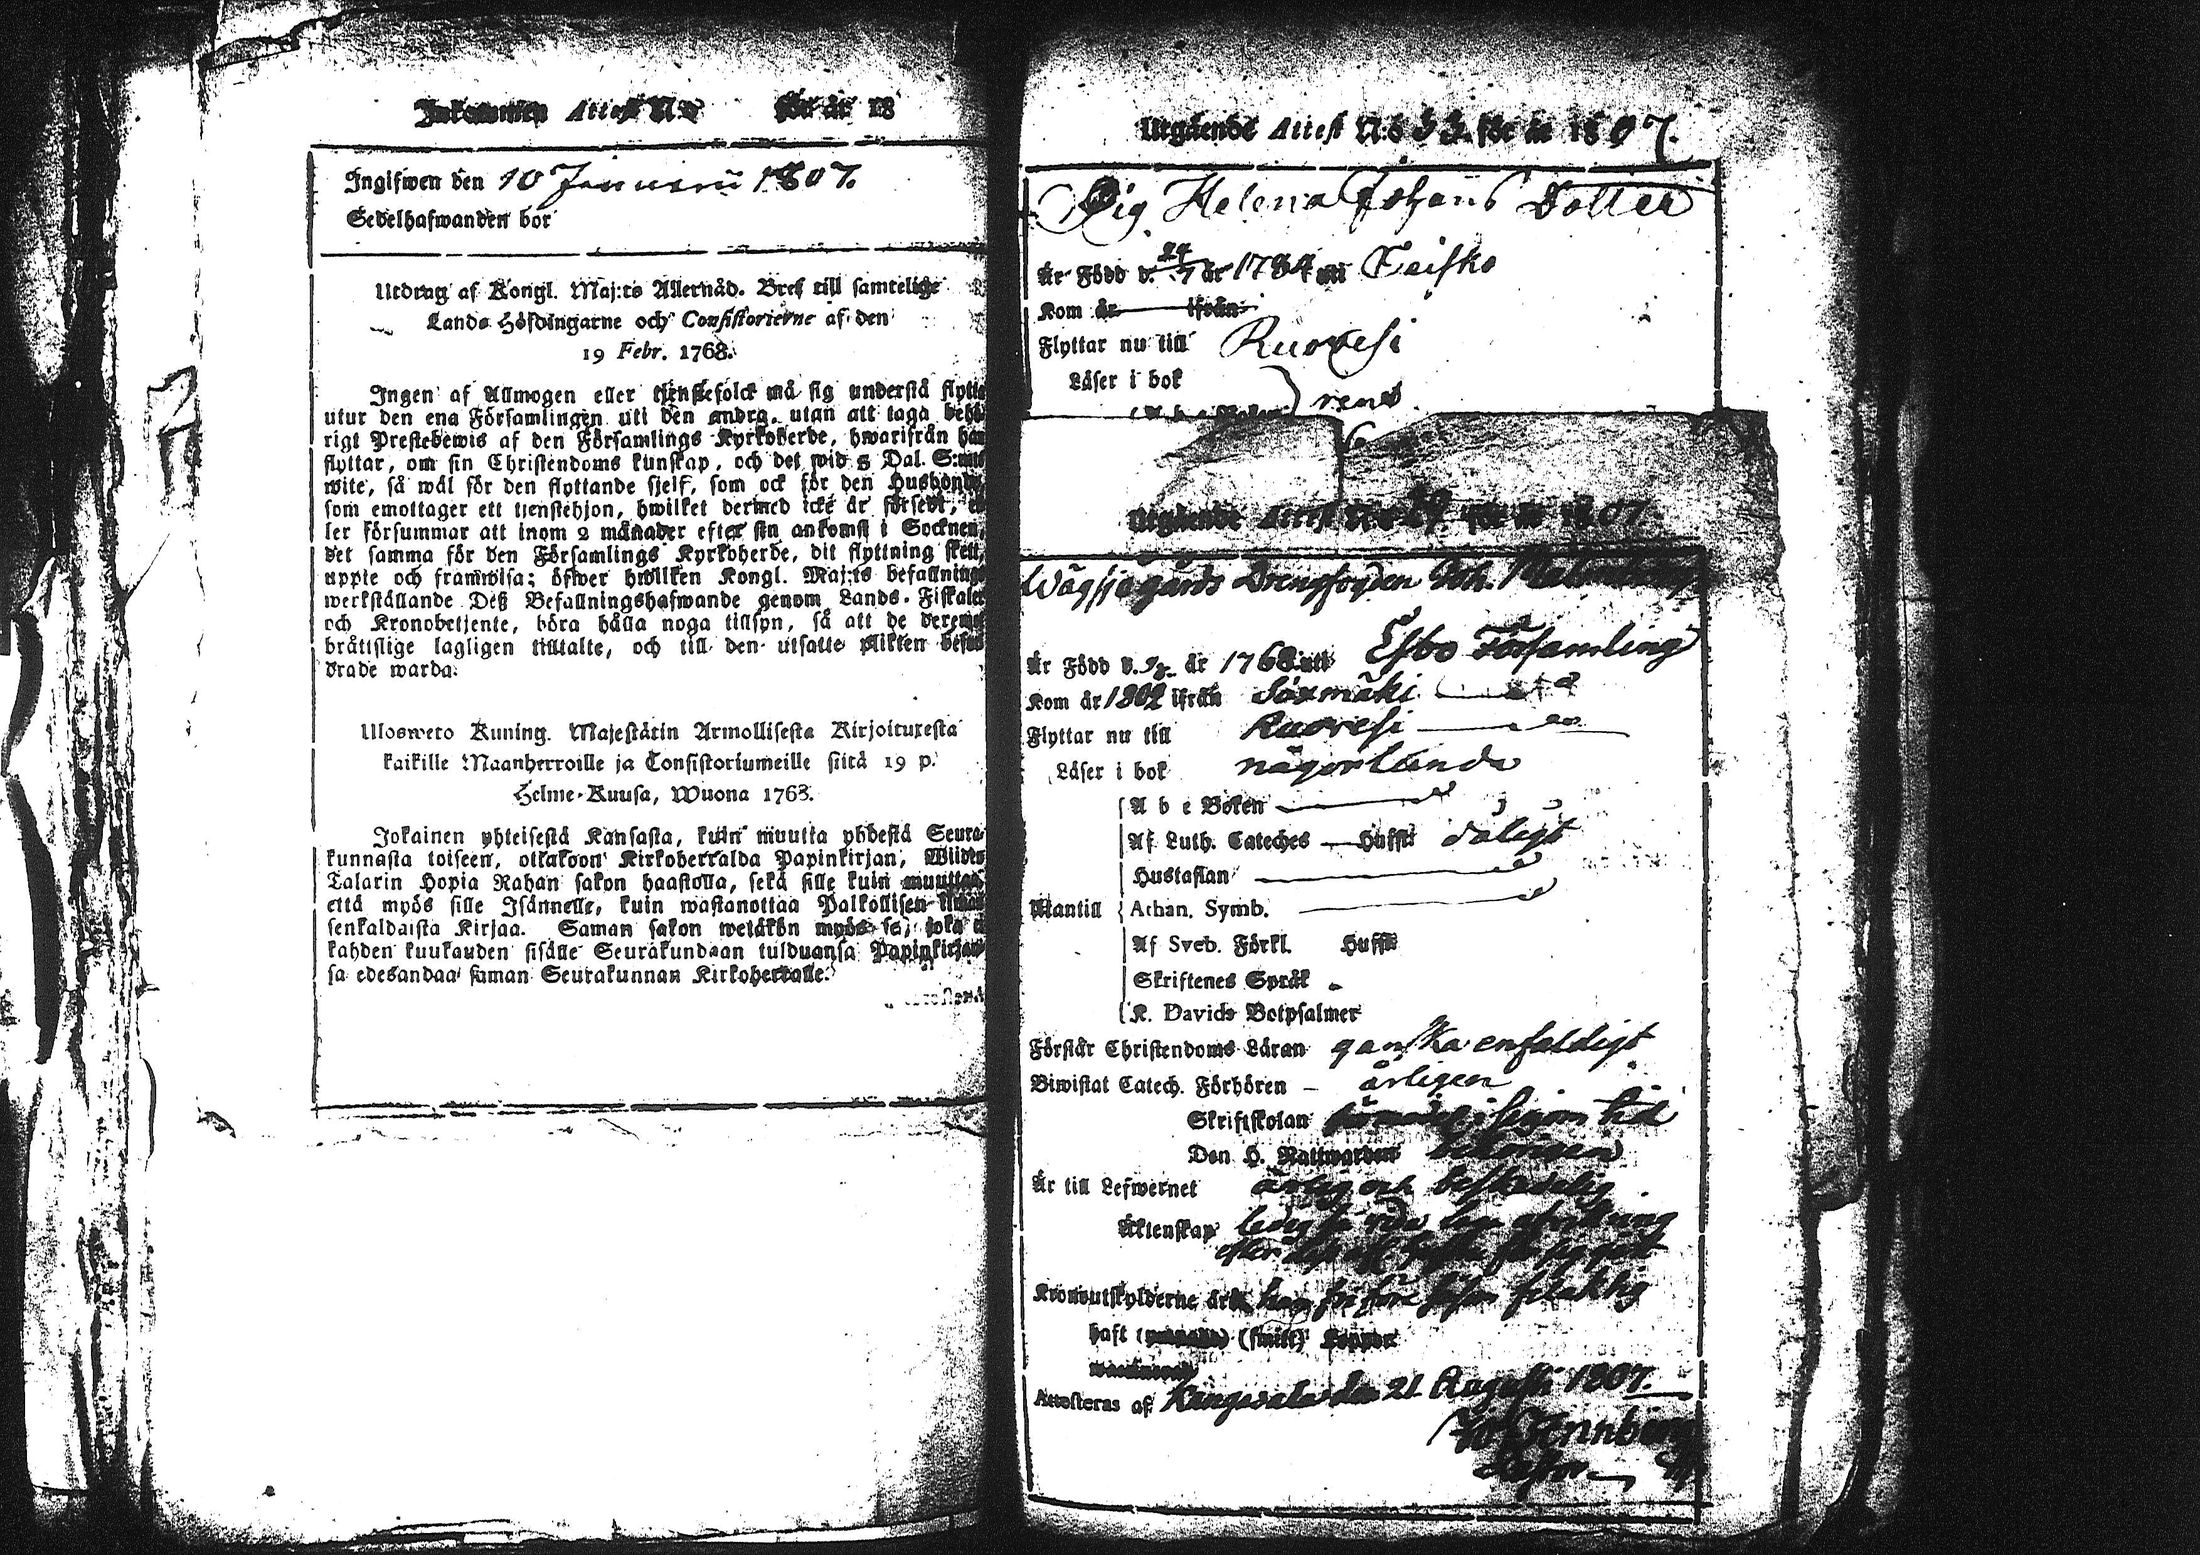 Inkommen Attest N:o för år 18
Ingifwen den 10 Januarii 1807.
Sedelhafwanden bor
Utdrag af Kongl. Maj:ts Allernåd. Bref till samtelige
Lands Höfdingarne och Consistorierne af den
19 Febr. 1768.
Ingen af Allmogen eller tjenstefolck må sig understå flytta
utur den ena Församlingen uti den andra, utan att taga behö
rigt Prestebewis af den Församlings Kyrkoherde, hwarifrån han
flyttar, om sin Christendoms kunskap, och det wid 5 Dal. S:mts
wite, så wäl för den flyttande sjelf, som ock för den Husbonde,
som emottager ett tjenstehjon, hwilket dermed icke är försedt, el
ler försummar att inom 2 månader efter sin ankomst i Socknen,
det samma för den Församlings Kyrkoherde, dit flyttning skett,
uppte och framwisa; öfwer hwilken Kongl. Maj:ts befallnings
werkställande Deß Befallningshafwande genom Lands-Fiskaler
och Kronobetjente, böra hålla noga tillsyn, så att de deremot
bråttslige lagligen tilltalte, och till den utsatte plikten befor
drade warda.
Ulosweto Kuning. Majestätin Armollisesta Kirjoituxesta
kaikille Maanherroille ja Consistoriumeille siitä 19 p.
Helme-Kuusa, Wuona 1768.
Jokainen yhteisestä Kansasta, kuin muutta yhdestä Seura
kunnasta toiseen, ottakoon Kirkoherralda Papinkirjan, Wiiden
Talarin Hopia Rahan sakon haastolla, sekä sille kuin muuttaa,
että myös sille Isännelle, kuin wastanottaa Palkollisen ilman
senkaldaista Kirjaa. Saman sakon wetäkön myös se, joka ei
kahden kuukauden sisälle Seurakundaan tulduansa Papinkirjan
sa edesandaa saman Seurakunnan Kirkoherralle.
Utgående Attest N:o 33. för år 1807.
Pig. Helena Johans Dotter
Är Född d. 24/7 år 1784 uti Teisko
Kom år ifrån
Flyttar nu till Ruovesi
Läser i bok rent
A b c Boken
Utgående Attest N:o 29 för år 1807.
Wägsjögårds Drengfogden Joh.
Är Född d. år 1768 uti Esbo Församling
Kom år 1802 ifrån Säxmäki
Flyttar nu till Ruovesi
Läser i bok någorlunda
A b c Boken
Af Luth. Cateches Hufst. dåligt
Hustaflan
Utantill Athan. Symb.
Af Sveb. Förkl. Hufst.
Skriftenes Språk
K. Davids Botpsalmer
Förstår Christendoms Läran ganska enfaldigt
Biwistat Catech. Förhören årligen
Skriftskolan i sinom tid
Den H. Nattwarden behörigen
Är till Lefwernet ärlig och beskedelig
Äktenskap ledig
Kronoutskylderne är
haft (smitt) Koppor
Attesteras af Kangasala den 21 Augusti 1807.